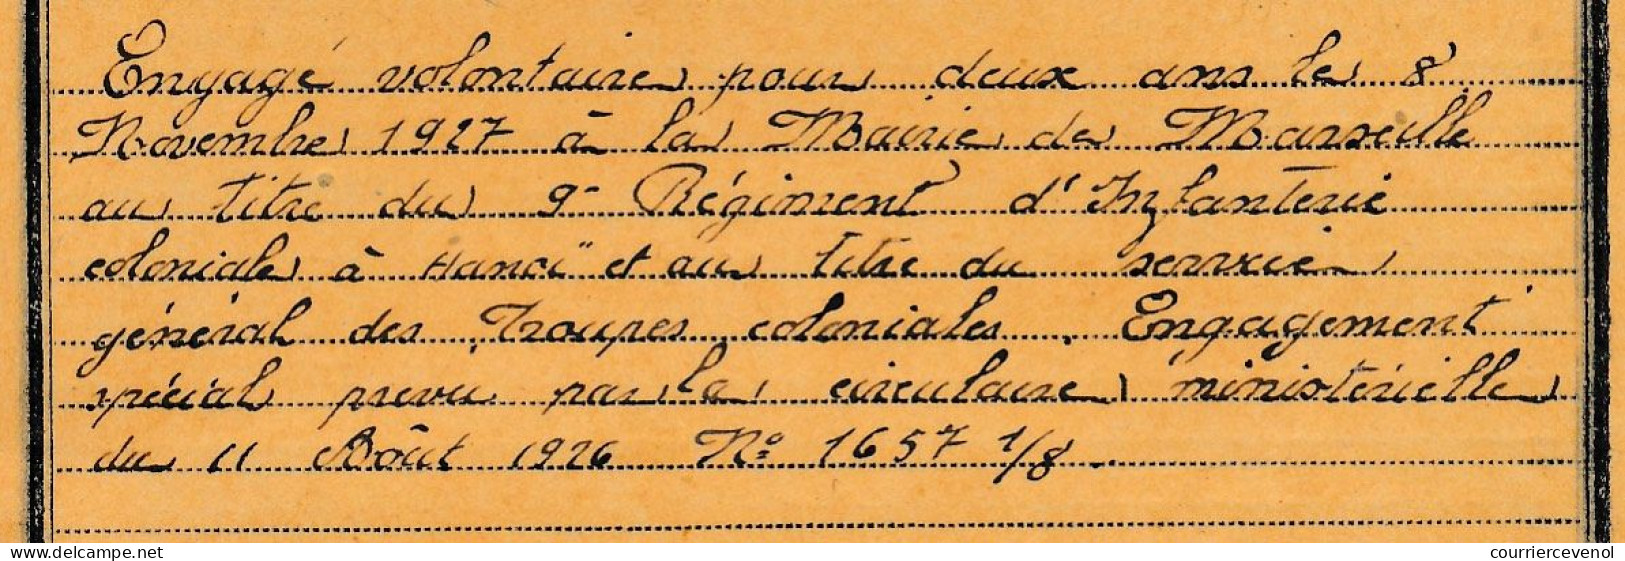 Engagé volontaire pour deux ans le 8
Novembre 1927 à la Mairie de Marseille
au titre du 9e Régiment d'Infanterie
coloniale à Hanoï et au titre du service
général des Troupes coloniales. Engagement
spécial prevu par la circulaire ministérielle
du 11 Août 1926 No 1657 1/8.
www.delcampe.net
courriercevenol